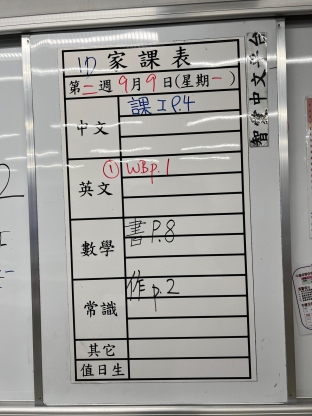 1D 家課表
第二週9月9日(星期一)
中文 課I P.4
英文 ① WBp.1
數學 書P.8
常識 作p.2
其它
值日生
智慧中文平台